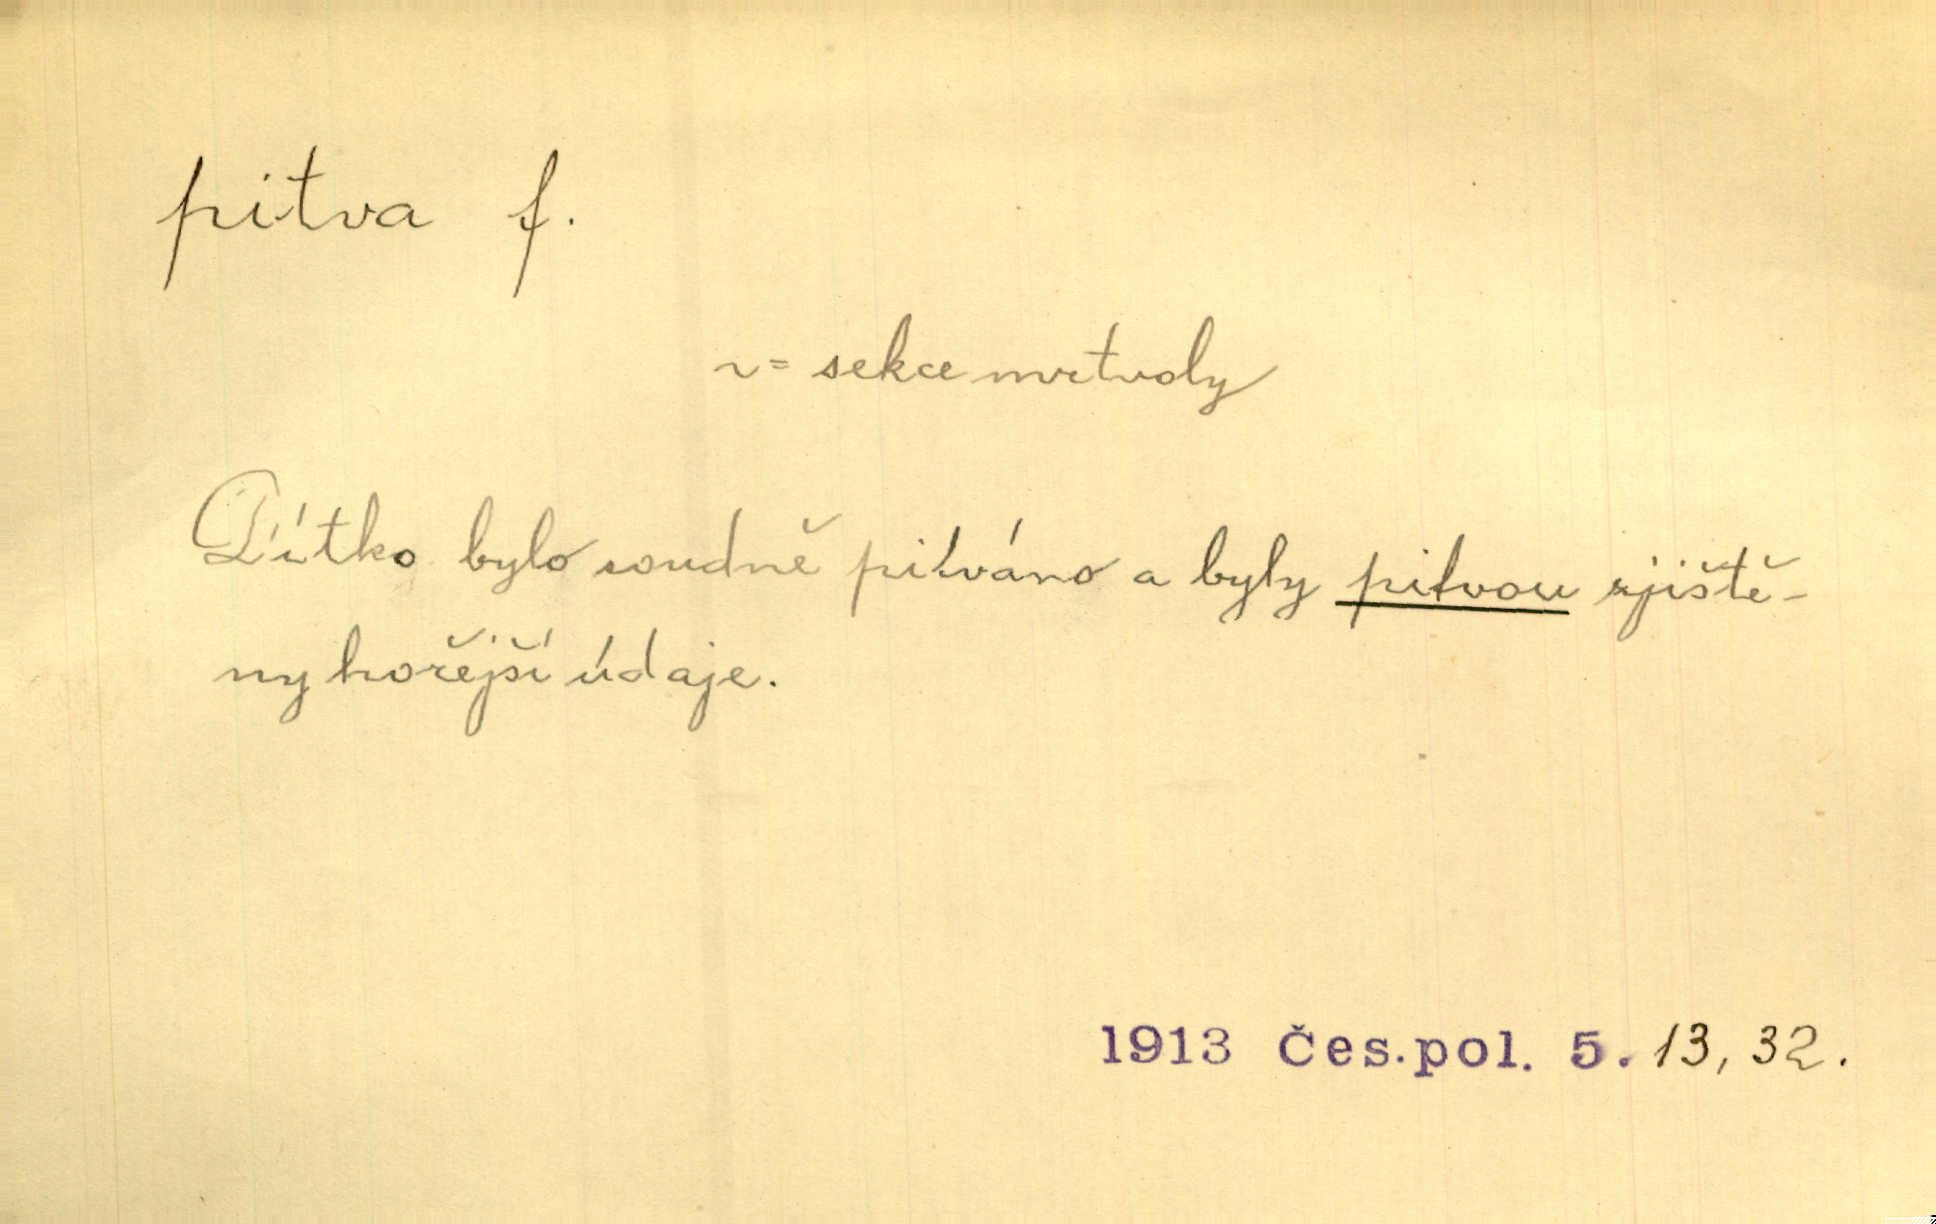 pitva f.
~= sekce mrtvoly
Dítko bylo soudně pitváno a byly pitvou zjiště-
ny hořejší údaje.
1913 Čes.pol. 5. 13, 32.